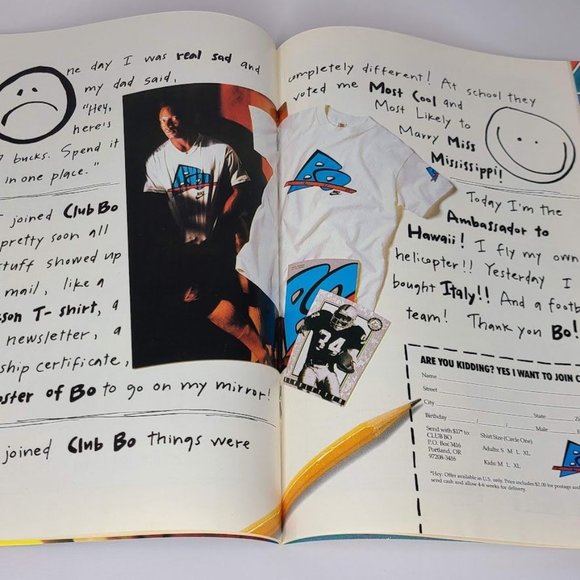 One day I was real sad and
my dad said,
"Hey,
here's
7 bucks. Spend it
in one place."
I joined Club Bo
pretty soon all
stuff showed up
mail, like a
T-shirt, a
newsletter, a
certificate,
poster of Bo to go on my mirror!
joined Club Bo things were
completely different! At school they
voted me Most Cool and
Most Likely to
Marry Miss
Mississippi!
Today I'm the
Ambassador to
Hawaii! I fly my own
helicopter!! Yesterday I
bought Italy!! And a
team! Thank you Bo!
BO
BO
34
ARE YOU KIDDING? YES I WANT TO JOIN
Name
Street
City
State
Birthday / / Male
Send with $17* to:
CLUB BO
P.O. Box 3416
Portland, OR
97208-3416
Shirt Size (Circle One)
Adults: S M L XL
Kids: M L XL
*Hey: Offer available in U.S. only. Price includes $2.00 for postage and
send cash and allow 4-6 weeks for delivery.